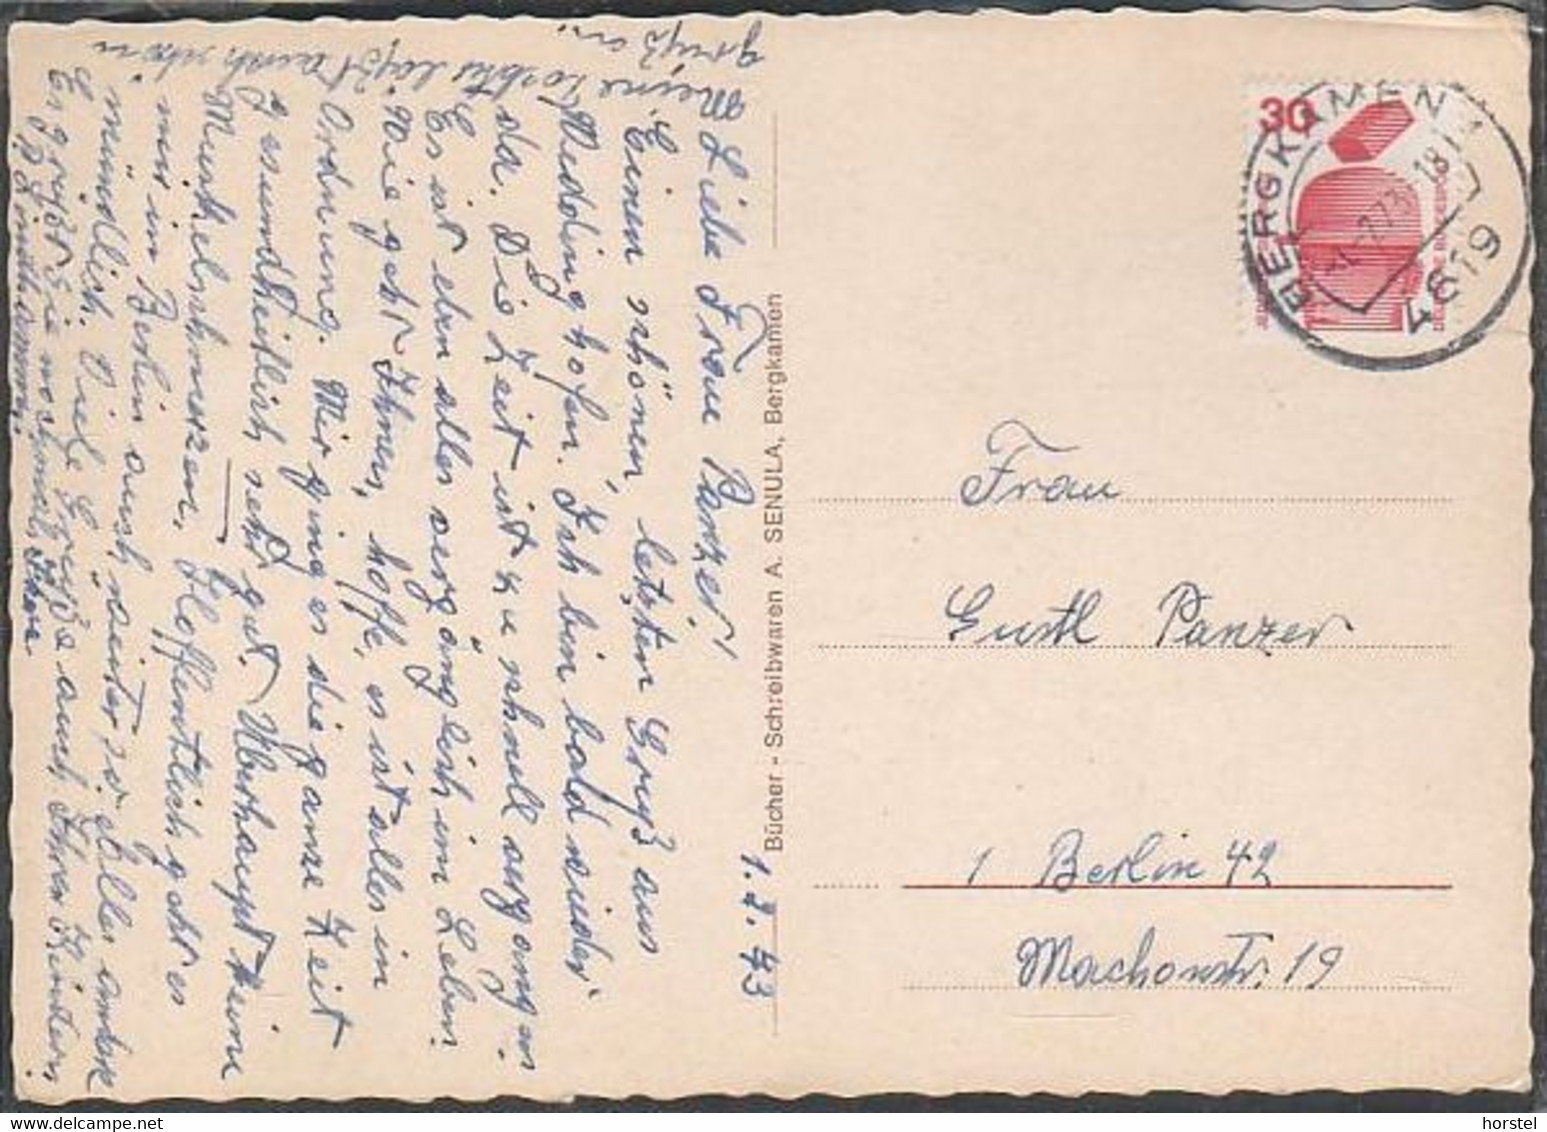 1.7.73
Liebe Frau Panzer!
Einen schönen, letzten Gruß aus
Weddinghofen. Ich bin bald wieder
da. Die Zeit ist zu schnell vergangen.
Es ist eben alles vergänglich im Leben.
Wie geht Ihnen, hoffe, es ist alles in
Ordnung. Mir ging es die ganze Zeit
gesundheitlich sehr gut. Überhaupt keine
Muskelschmerzen. Hoffentlich geht es
mir in Berlin auch weiter so. Alles andere
mündlich. Viele Grüße auch Ihren Kindern.
Es grüßt Sie nochmals, Ihre
Lindhamm.
Meine läßt auch schön
grüßen.
Bücher - Schreibwaren A. SENULA, Bergkamen
30
BERGKAMEN
18
4619
Frau
Gustl Panzer
1 Berlin 42
Machonstr. 19
horstel